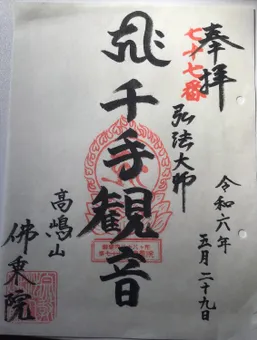 奉拝
七十七番
弘法大師
千手観音
高嶋山
佛乗院
令和六年
五月二十九日